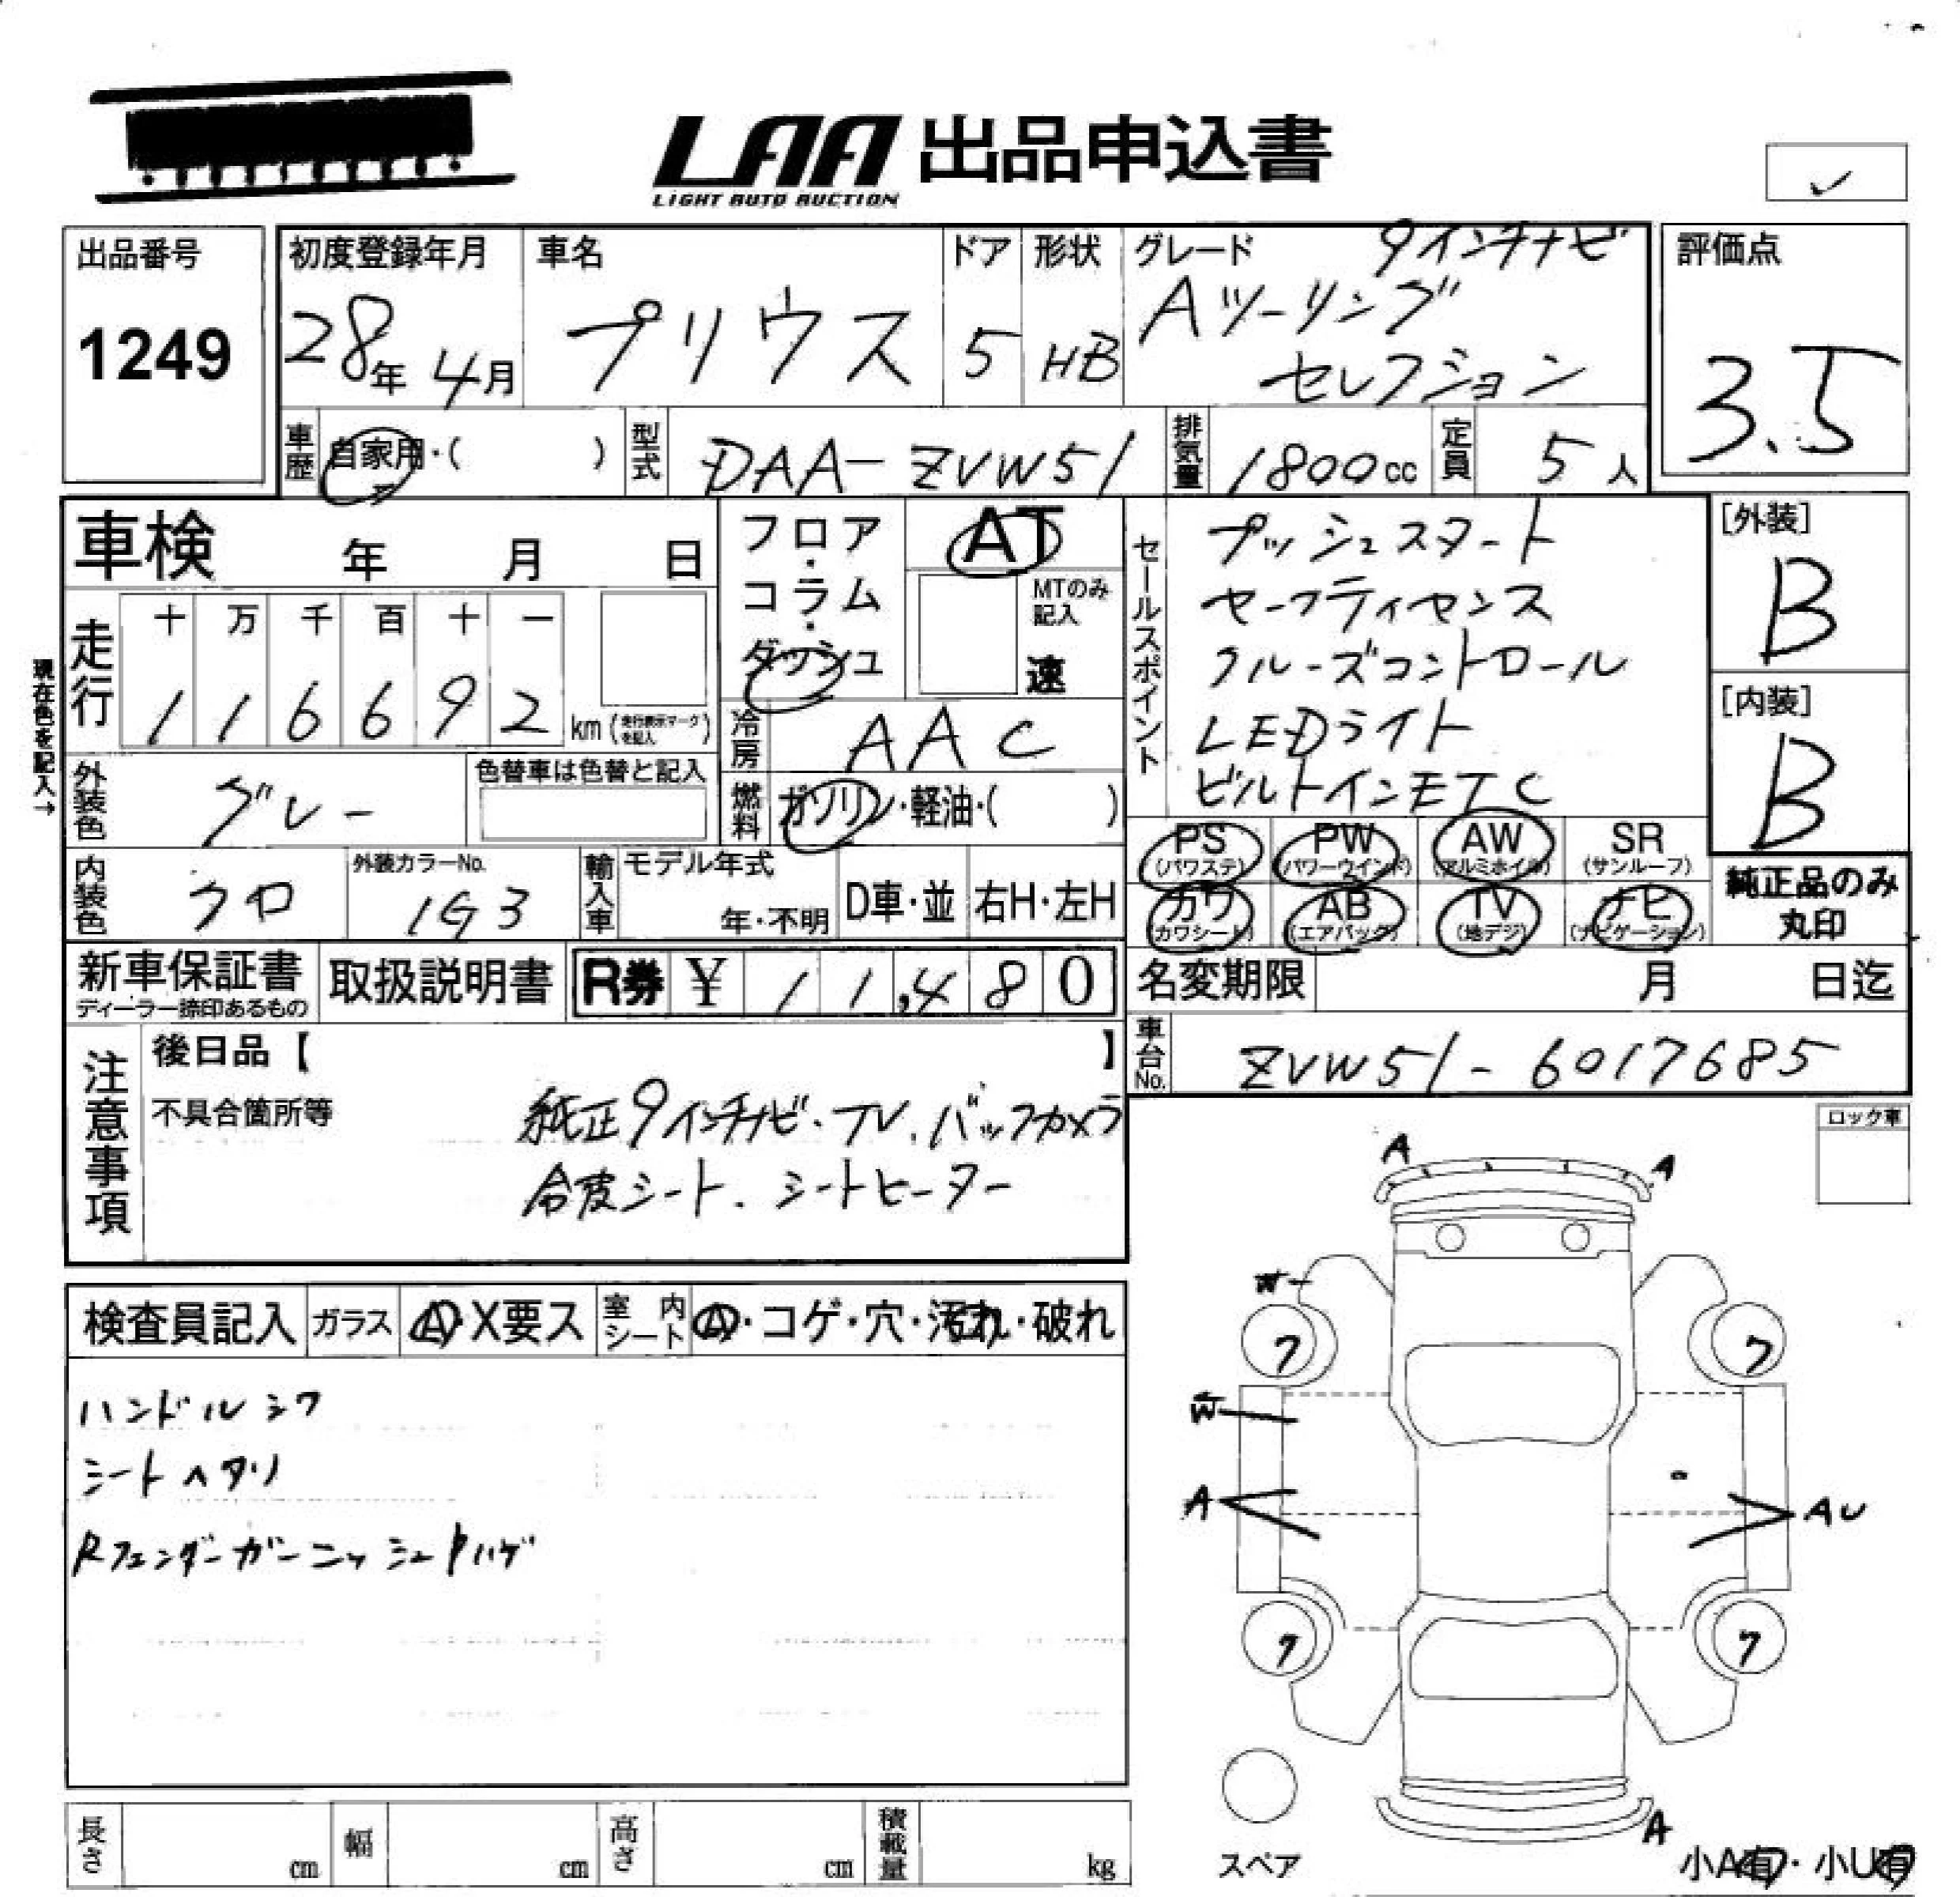 LAA 出品申込書
LIGHT AUTO AUCTION
出品番号
1249
初度登録年月
28年 4月
車名
プリウス
ドア
5
形状
HB
グレード
9インチナビ
Aツーリング
セレクション
評価点
3.5
車歴
自家用・( )
型式
DAA-ZVW51
排気量
1800cc
定員
5人
車検 年 月 日
フロア・コラム・ダッシュ
AT
MTのみ記入
速
セールスポイント
プッシュスタート
セーフティセンス
クルーズコントロール
LEDライト
ビルトインETC
[外装]
B
[内装]
B
現在色を記入→
走行
十 万 千 百 十 一
1 1 6 6 9 2 km (走行表示マークを記入)
冷房
AAC
外装色
グレー
色替車は色替と記入
燃料
ガソリン・軽油・( )
PS (パワステ)
PW (パワーウインド)
AW (アルミホイル)
SR (サンルーフ)
カワ (カワシート)
AB (エアバック)
TV (地デジ)
ナビ (ナビゲーション)
純正品のみ
丸印
内装色
クロ
外装カラーNo.
1G3
輸入車
モデル年式
年・不明
D車・並
右H・左H
新車保証書
ディーラー捺印あるもの
取扱説明書
R券 ¥ 11,480
名変期限 月 日迄
車台No.
ZVW51-6017685
注意事項
後日品【 】
不具合箇所等
純正9インチナビ・TV、バックカメラ
合皮シート、シートヒーター
ロック車
検査員記入
ガラス
A・X要ス
室内シート
A・コゲ・穴・汚れ・破れ
ハンドルシワ
シートヘタリ
RフェンダーガーニッシュPハゲ
A
A
W
ワ
ワ
W
A
AU
ワ
ワ
A
スペア
小A有・小U有
長さ cm
幅 cm
高さ cm
積載量 kg